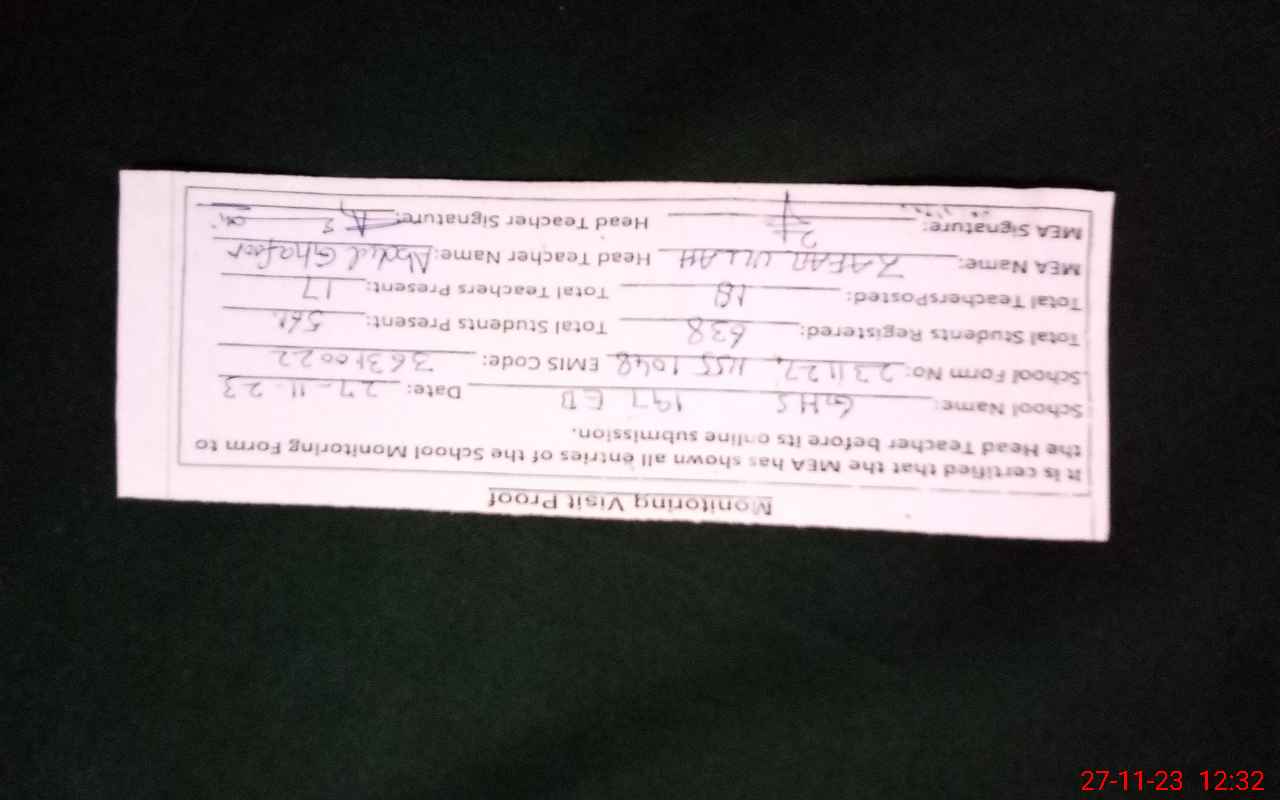 Monitoring Visit Proof
It is certified that the MEA has shown all entries of the School Monitoring Form to
the Head Teacher before its online submission.
School Name: GHS 197 EB Date: 27-11-23
School Form No: 231127 1155 1048 EMIS Code: 36310022
Total Students Registered: 638 Total Students Present:
Total TeachersPosted: 18 Total Teachers Present: 17
MEA Name: ZAFAR ULLAH Head Teacher Name: Abdul Ghafoor
MEA Signature: Head Teacher Signature:
27-11-23 12:32